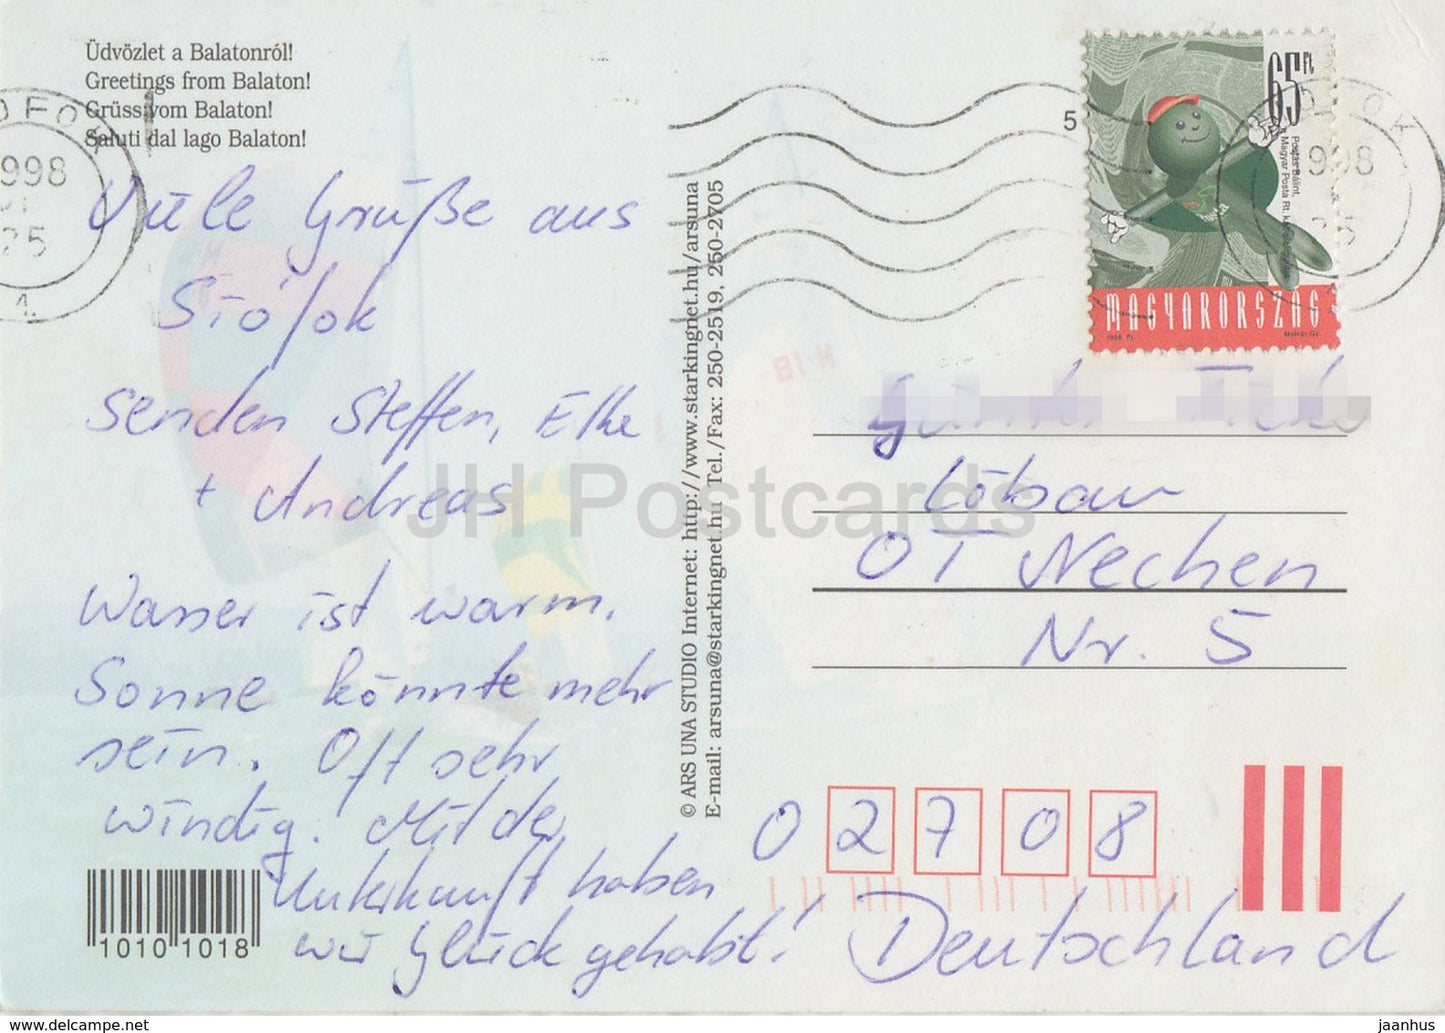 Üdvözlet a Balatonról!
Greetings from Balaton!
Grüss vom Balaton!
Saluti dal lago Balaton!
Viele Grüße aus
Siófok
senden Steffen, Elke
+ Andreas
Wasser ist warm.
Sonne könnte mehr
sein. Oft sehr
windig. Mit der
Unterkunft haben
wir Glück gehabt!
1010 1018
© ARS UNA STUDIO Internet: http://www.starkingnet.hu/arsuna
E-mail: arsuna@starkingnet.hu Tel./Fax: 250-2519, 250-2705
JH Postcards
1998
25
4
5
65 Ft
Postás Bálint,
MAGYARORSZÁG
1998
25
Löbau
OT Nechen
Nr. 5
0 2 7 0 8
Deutschland
www.delcampe.net
jaanhus